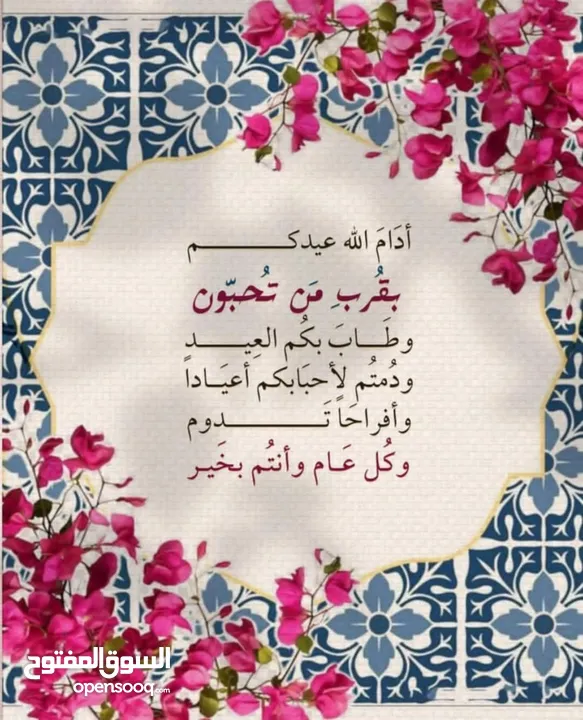 أدَامَ الله عيدكـــــم
بقُربِ مَن تُحبّون
وطَـــابَ بكُم العِيـــد
ودُمتُم لأحبَابكم أعيَاداً
وأفراحَاً تَـــــدوم
وكُل عَـام وأنتُم بخَيـر
السوق المفتوح
opensooq.com